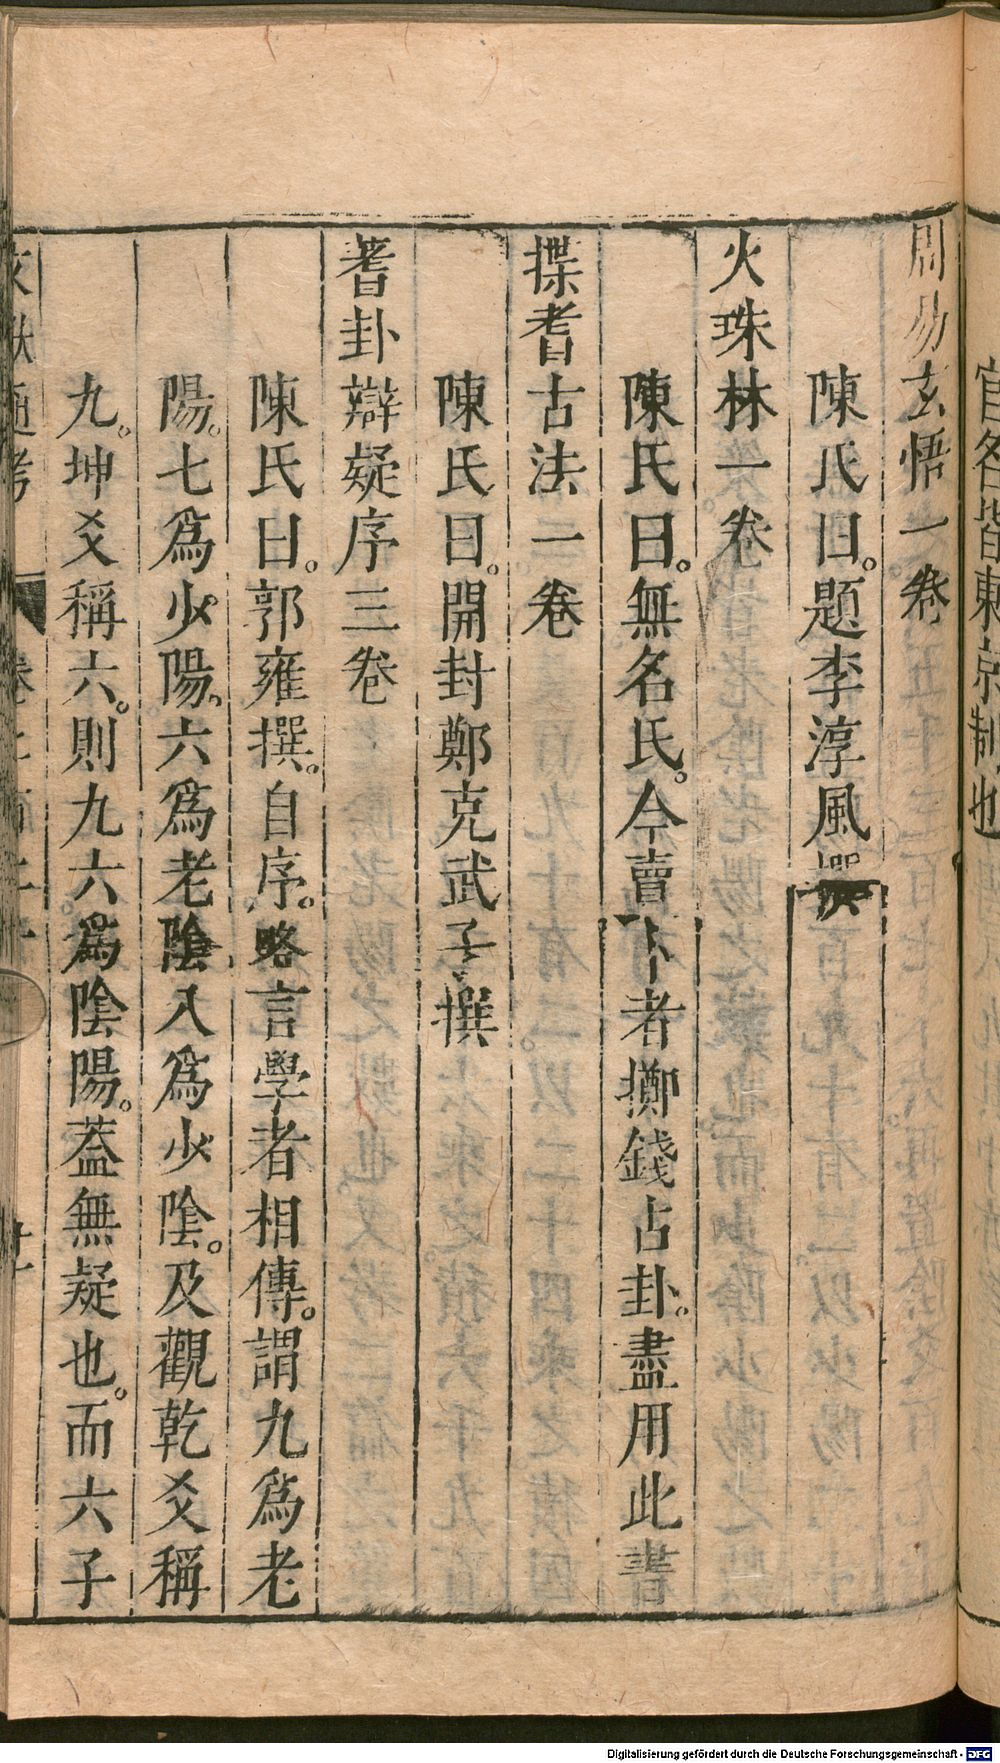 官名皆東京制也
周易玄悟一卷
陳氏曰。題李淳風撰
火珠林一卷
陳氏曰。無名氏。今賣卜者擲錢占卦。盡用此書
揲蓍古法一卷
陳氏曰。開封鄭克武子撰
蓍卦辯疑序三卷
陳氏曰。郭雍撰。自序。略言學者相傳。謂九爲老
陽。七爲少陽。六爲老陰。八爲少陰。及觀乾爻稱
九。坤爻稱六。則九六爲陰陽。蓋無疑也。而六子
文獻通考
Digitalisierung gefördert durch die Deutsche Forschungsgemeinschaft - DFG